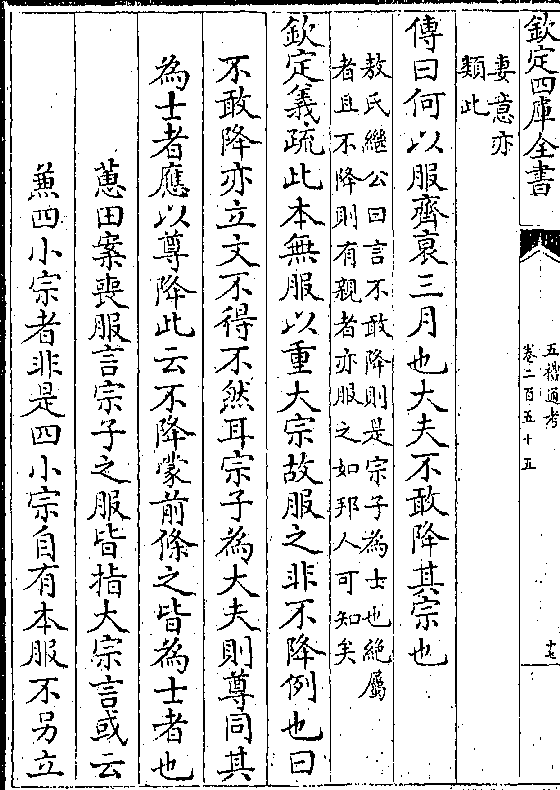 欽定四庫全書
五禮通考
卷二百五十五
十七
妻意亦
類此
傳曰何以服齊衰三月也大夫不敢降其宗也
敖氏繼公曰言不敢降則是宗子為士也絶屬
者且不降則有親者亦服之如邦人可知矣
欽定義疏此本無服以重大宗故服之非不降例也曰
不敢降亦立文不得不然耳宗子為大夫則尊同其
為士者應以尊降此云不降蒙前條之皆為士者也
蕙田案喪服言宗子之服皆指大宗言或云
兼四小宗者非是四小宗自有本服不另立